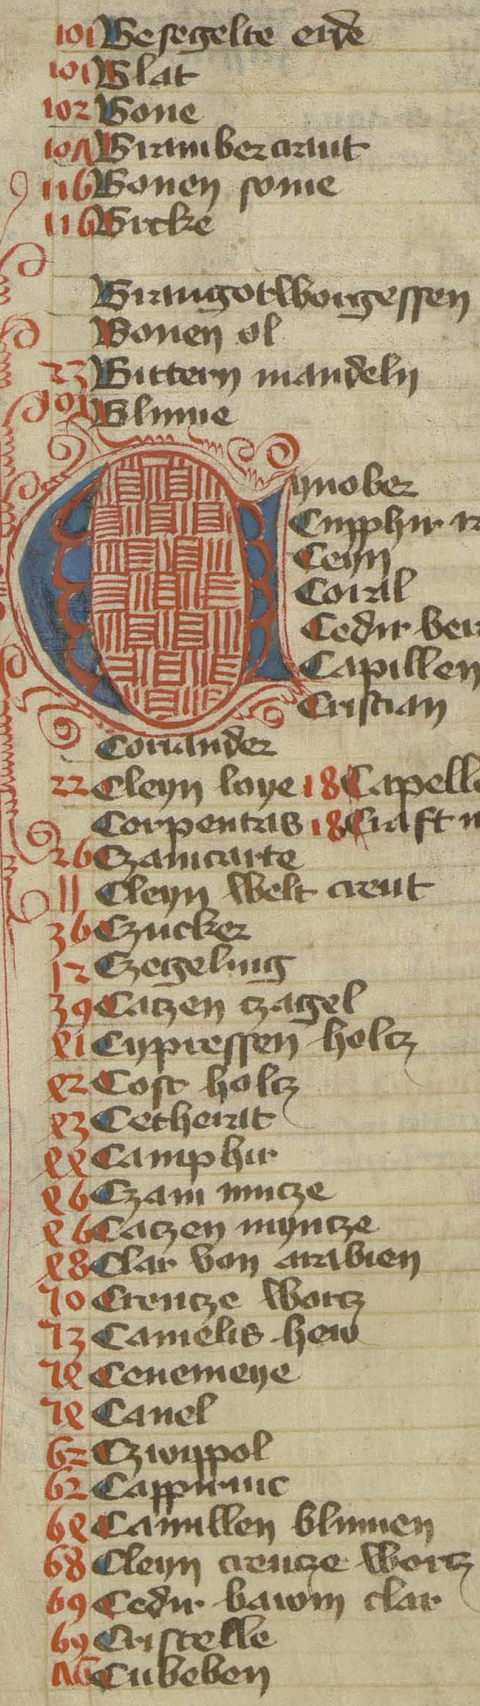 101 Besegelte erde
101 Blat
102 Bone
Brambercraut
116 Bonen
116 Bicke
Bonen ol
23 Bittern mandeln
Blume
Cynober
Ceyn
Coral
Cedir
Capillen
Cristian
Coriander
22 Cleyn loye 18 Capelle
Corpentas 18 Craft
26 Czamcarte
11 Cleyn welt creut
36 Czucker
12 Czegeling
39 Catzen czagel
41 Cypressen holcz
42 Cost holcz
43 Cetherat
44 Camphir
46 Czam mincze
46 Catzen myntze
48 Clar von arabien
50 Creutze wortz
53 Camelis hew
54 Cenemeye
54 Canel
62 Czwyppol
62
64 Camillen blumen
68 Cleyn creutze wortz
69 Cedir bawm clar
69 Cristelle
Cubeben